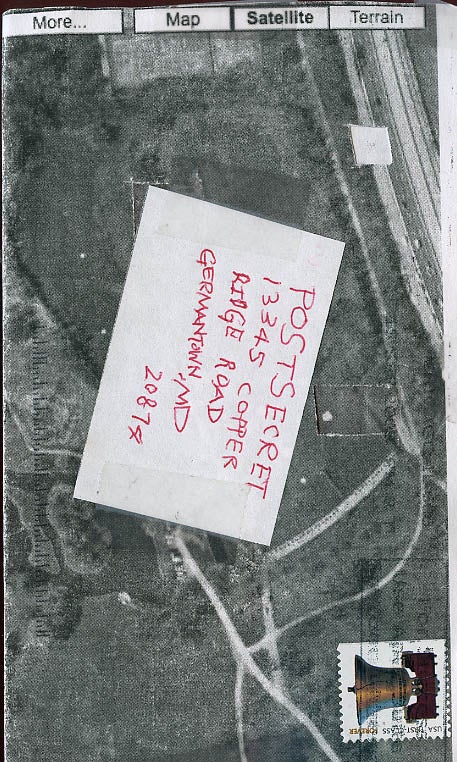 More...
Map
Satellite
Terrain
POSTSECRET
13345 COPPER
RIDGE ROAD
GERMANTOWN, MD
20874
USA FIRST-CLASS
FOREVER